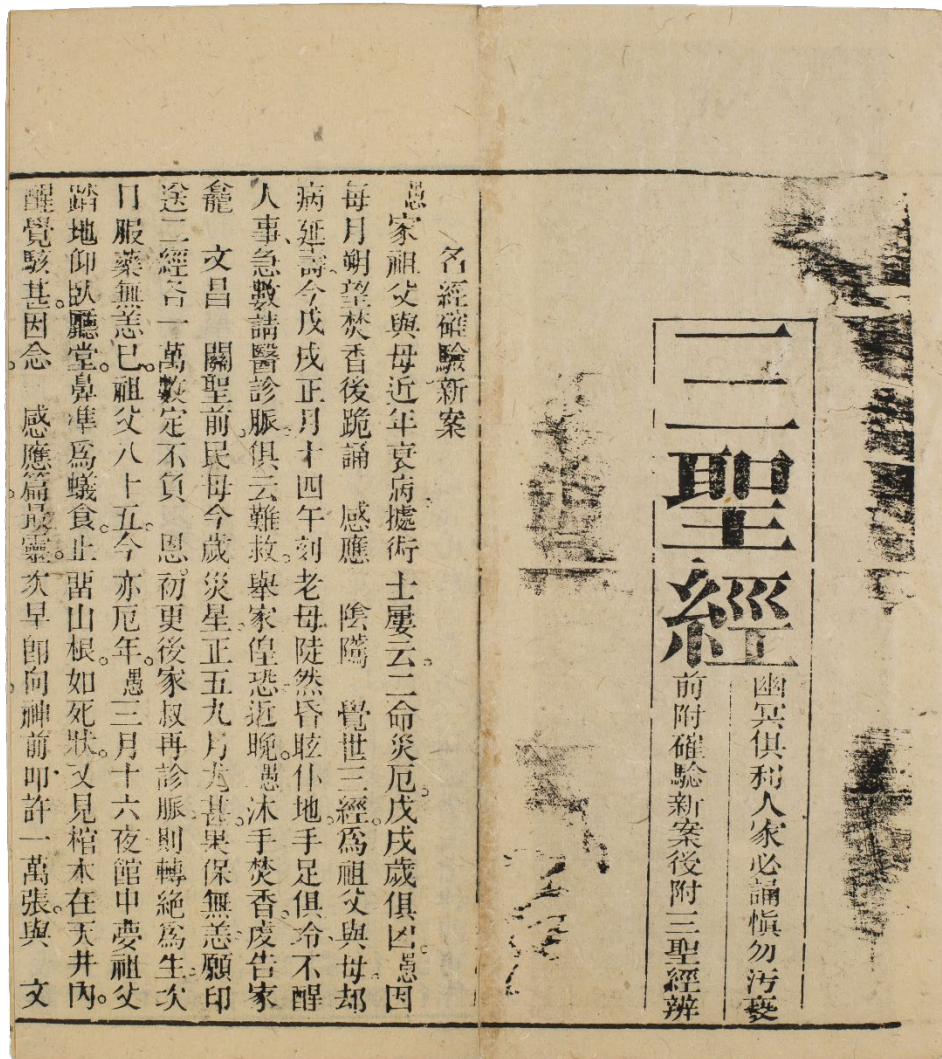 三聖經
幽冥俱利人家必誦愼勿汚䙝
前附確驗新案後附三聖經辨
名經確驗新案
愚家祖父與母近年衰病據術士屢云二命災厄戊戌歲俱凶愚因
每月朔望焚香後跪誦　感應　陰隲　覺世三經爲祖父與母却
病延壽今戊戌正月十四午刻老母陡然昏眩仆地手足俱冷不醒
人事急數請醫診脈俱云難救舉家偟恐近晚愚沐手焚香虔告家
龕　文昌　關聖前民母今歲災星正五九月尤甚果保無恙願印
送二經各一萬數定不負　恩初更後家叔再診脈則轉絕爲生次
日服藥無恙已祖父八十五今亦厄年愚三月十六夜館中夢祖父
踏地仰臥廳堂鼻準爲蟻食止留山根如死狀又見棺木在天井內
醒覺駭甚因念　感應篇最靈次早卽向神前叩許一萬張與　文